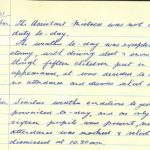 The Assistant Mistress was not on
duty to-day.
The weather to-day was exceptionally
stormy, with driving sleet & snow
though fifteen children put in an
appearance, it was decided to
no attendance and dismiss school
Similar weather conditions to yes
prevailed to-day, and as only
sixteen pupils were present, no
attendance was marked & school
dismissed at 10.30am.